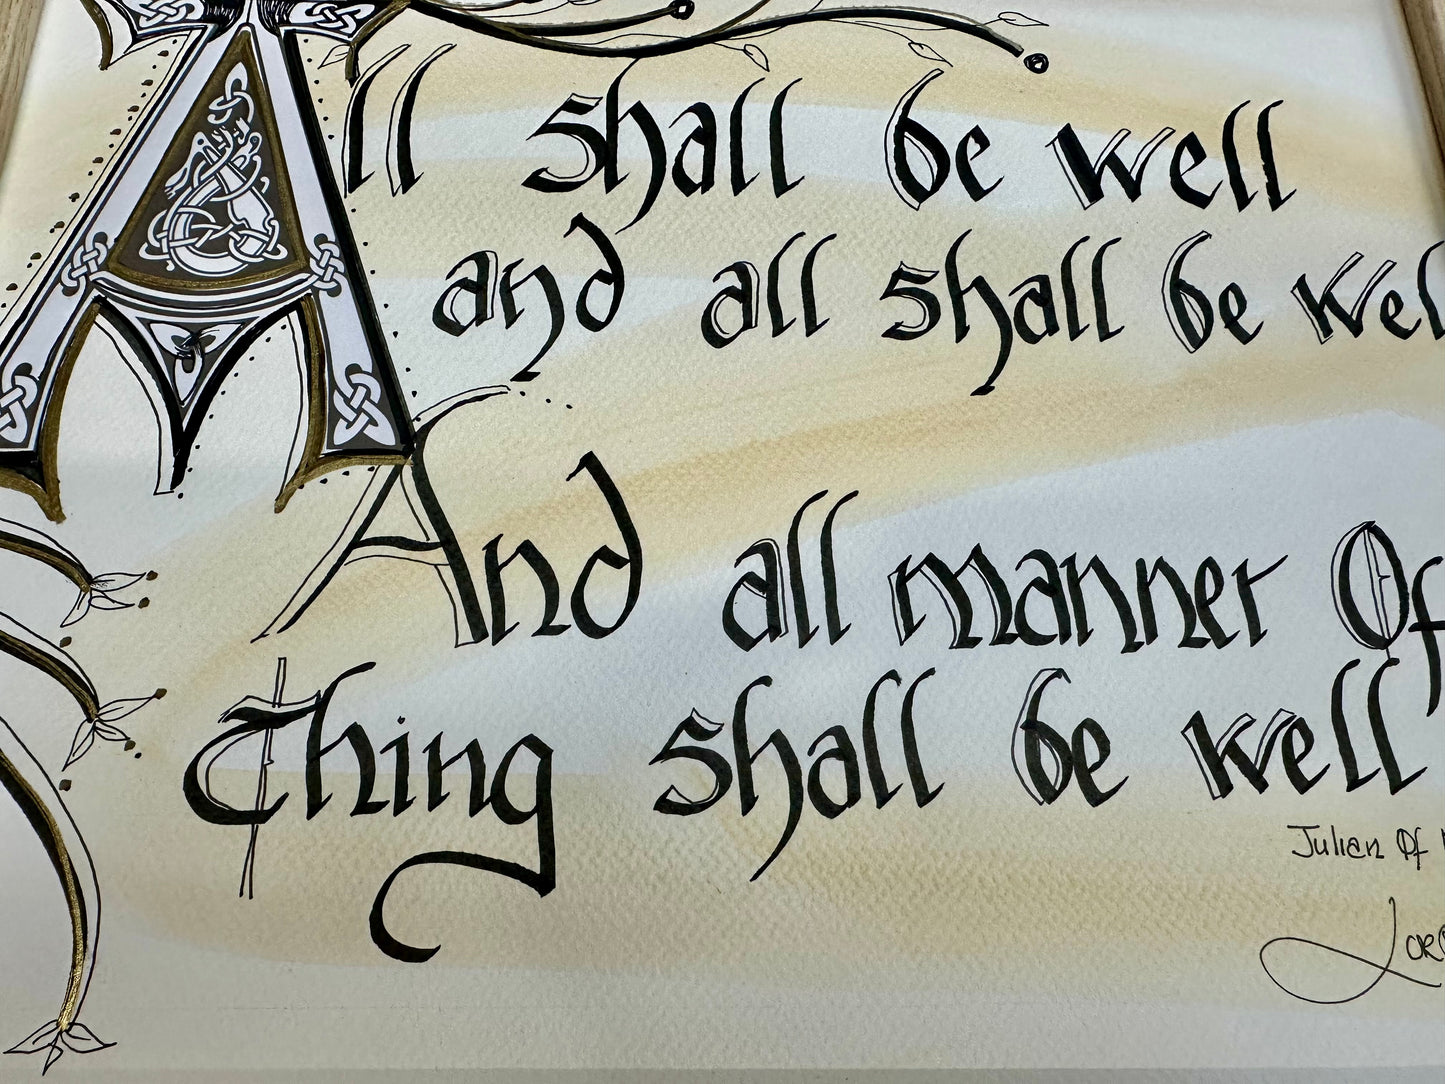 All shall be well
and all shall be wel
And all manner Of
Thing shall be well
Julian Of